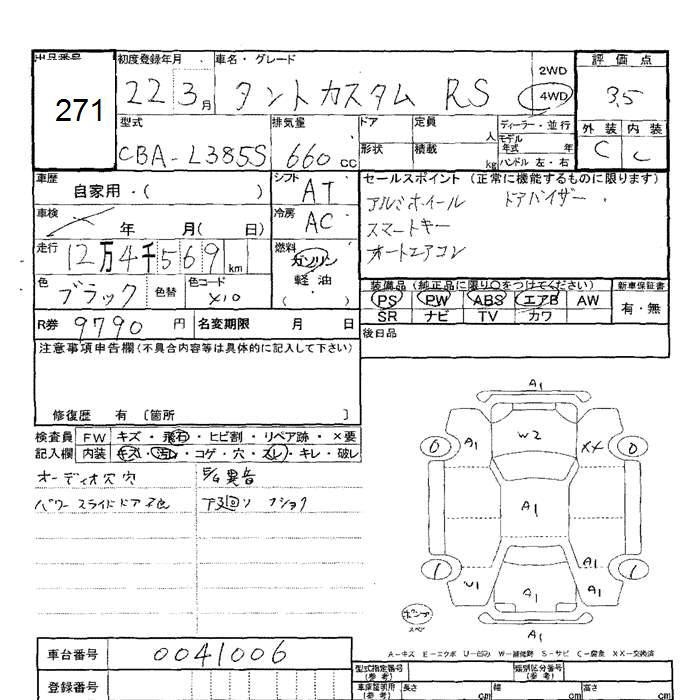 出品番号
271
初度登録年月
22 3月
車名・グレード
タントカスタム RS
2WD
4WD
評価点
3.5
外装 内装
C C
型式
CBA-L385S
排気量
660 cc
ドア
定員
人
形状
積載
kg
ディーラー・並行
モデル年式 年
ハンドル 左・右
車歴
自家用・( )
シフト
AT
車検
年 月( 日)
冷房
AC
走行
12万4千569 km
燃料
ガソリン
軽油
( )
色
ブラック
色替
色コード
X10
R券 9790 円
名変期限 月 日
セールスポイント (正常に機能するものに限ります)
アルミホイール ドアバイザー
スマートキー
オートエアコン
装備品 (純正品に限り○をつけてください)
新車保証書
PS PW ABS エアB AW
有・無
SR ナビ TV カワ
後日品
注意事項申告欄(不具合内容等は具体的に記入して下さい)
修復歴 有 〔箇所 〕
検査員 FW キズ・飛石・ヒビ割・リペア跡・×要
記入欄 内装 キズ・汚れ・コゲ・穴・スレ・キレ・破レ
オーディオ穴 穴
E/G 異音
パワースライドドア不良
下廻り フショク
A1
W2
A1
XX
0 0
A1
1 1
W1
A1
A1
A1
A1
A-キズ E-エクボ U-凹み W-補修跡 S-サビ C-腐食 XX-交換済
車台番号 0041006
登録番号
型式指定番号
(参考)
類別区分番号
(参考)
車庫証明用
(参考)
長さ cm
幅 cm
高さ cm